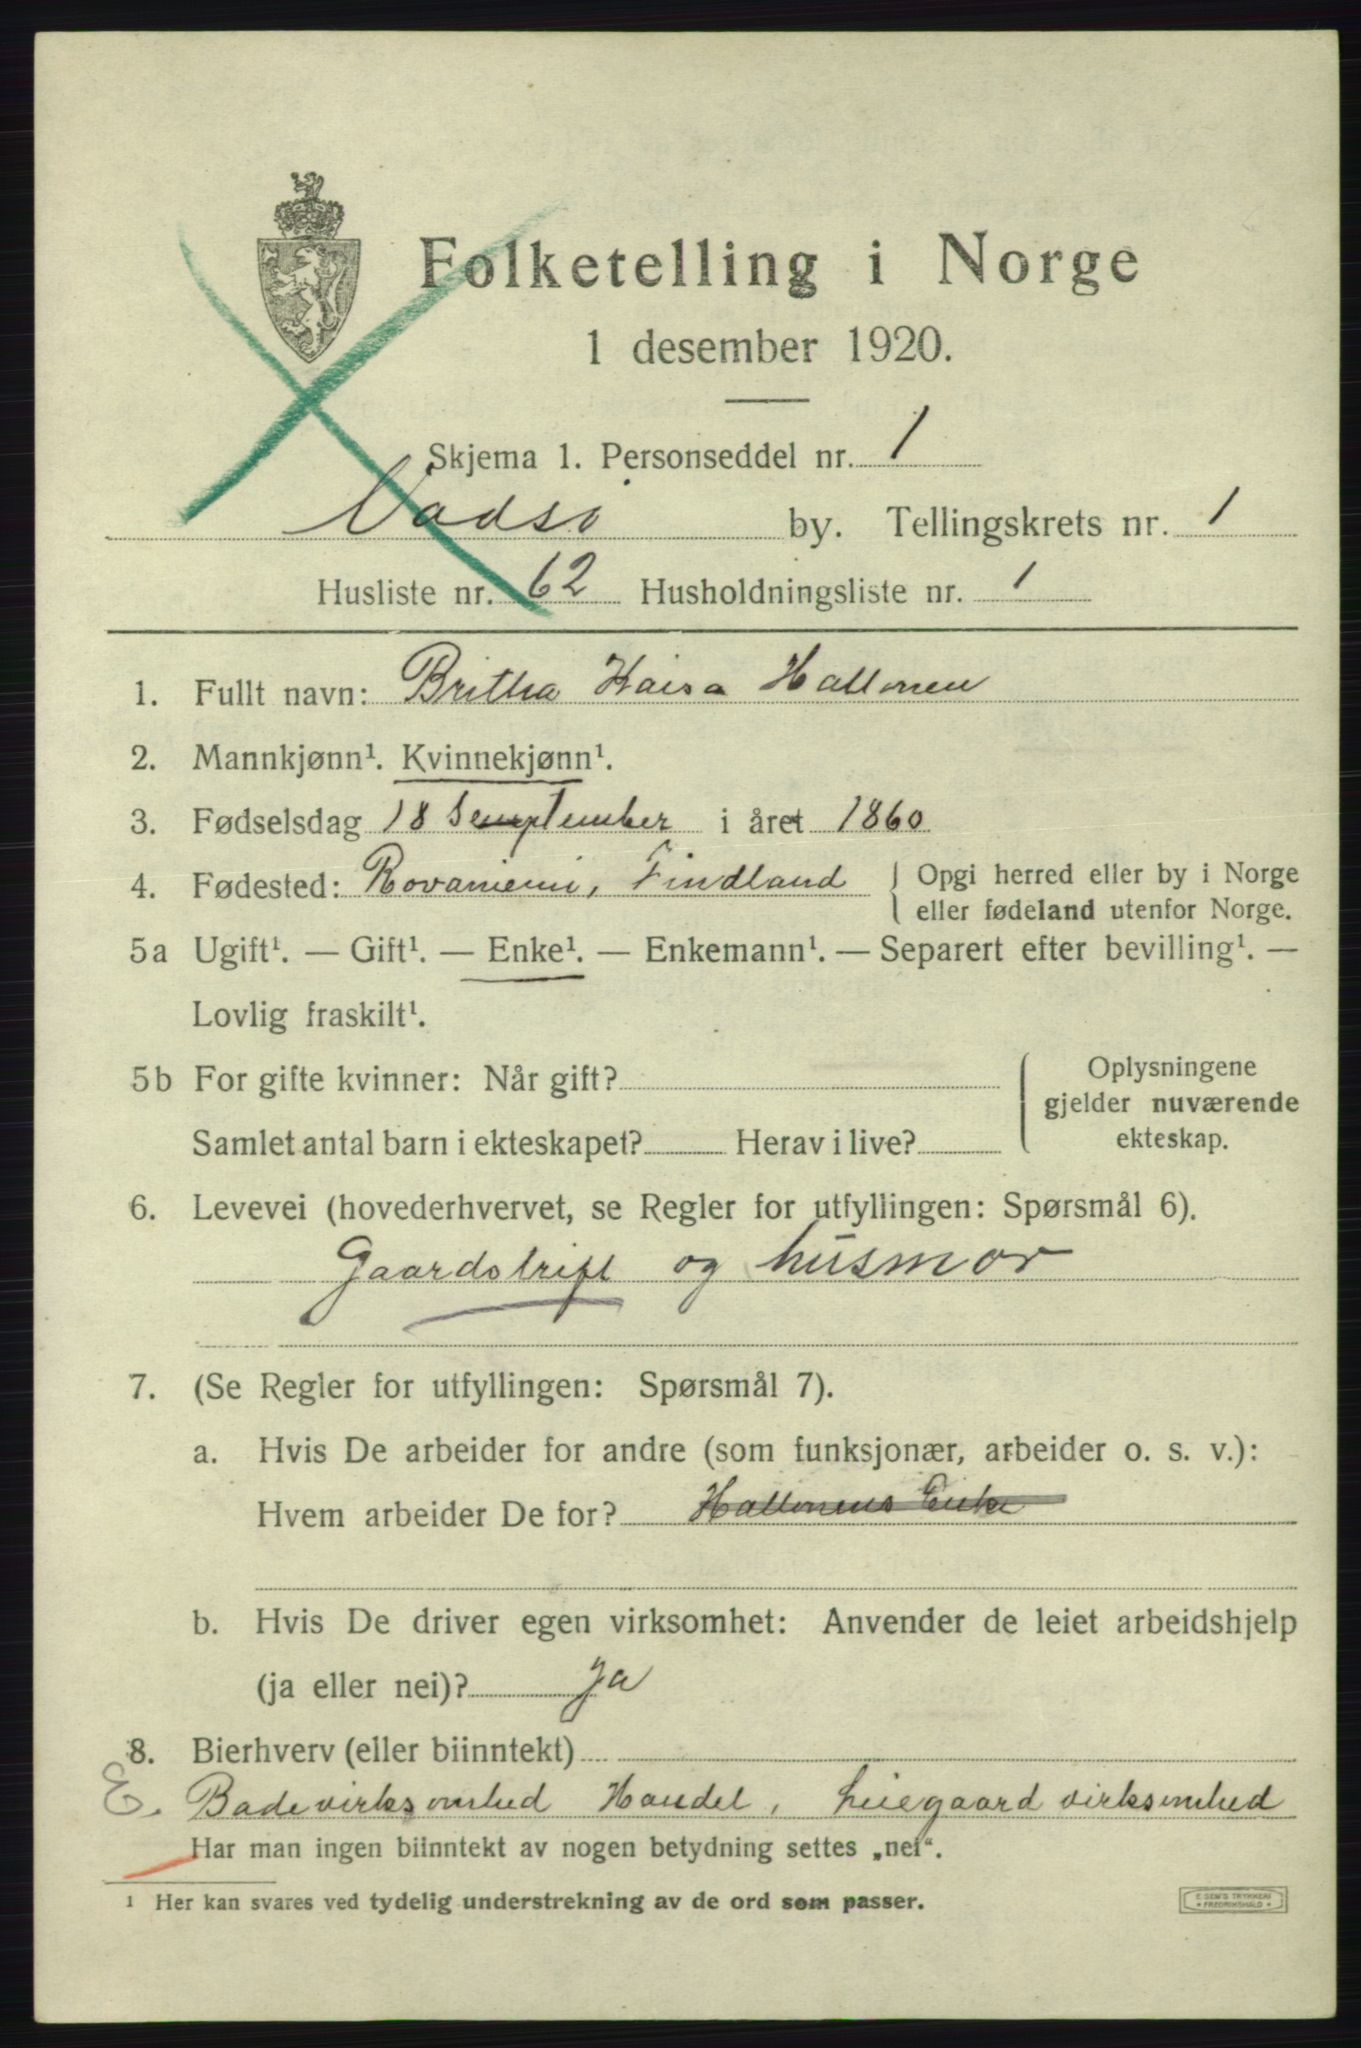 Folketelling i Norge
1 desember 1920.
Skjema 1. Personseddel nr. 1
Vadsø by. Tellingskrets nr. 1
Husliste nr. 62 Husholdningsliste nr. 1
1. Fullt navn: Britha Kaisa Hallonen
2. Mannkjønn¹. Kvinnekjønn¹.
3. Fødselsdag 18 September i året 1860
4. Fødested: Rovaniemi, Findland { Opgi herred eller by i Norge
eller fødeland utenfor Norge.
5a Ugift¹. — Gift¹. — Enke¹. — Enkemann¹. — Separert efter bevilling¹. —
Lovlig fraskilt¹.
5b For gifte kvinner: Når gift?
Samlet antal barn i ekteskapet? Herav i live?
Oplysningene
gjelder nuværende
ekteskap.
6. Levevei (hovederhvervet, se Regler for utfyllingen: Spørsmål 6).
Gaardsdrift og husmor
7. (Se Regler for utfyllingen: Spørsmål 7).
a. Hvis De arbeider for andre (som funksjonær, arbeider o. s. v.):
Hvem arbeider De for? Hallonens Enke
b. Hvis De driver egen virksomhet: Anvender de leiet arbeidshjelp
(ja eller nei)? Ja
8. Bierhverv (eller biinntekt)
E. Badevirksomhed Handel, Leiegaard virksomhed
Har man ingen biinntekt av nogen betydning settes „nei“.
¹ Her kan svares ved tydelig understrekning av de ord som passer.
E SEM'S TRYKKERI
* FREDRIKSHALD *